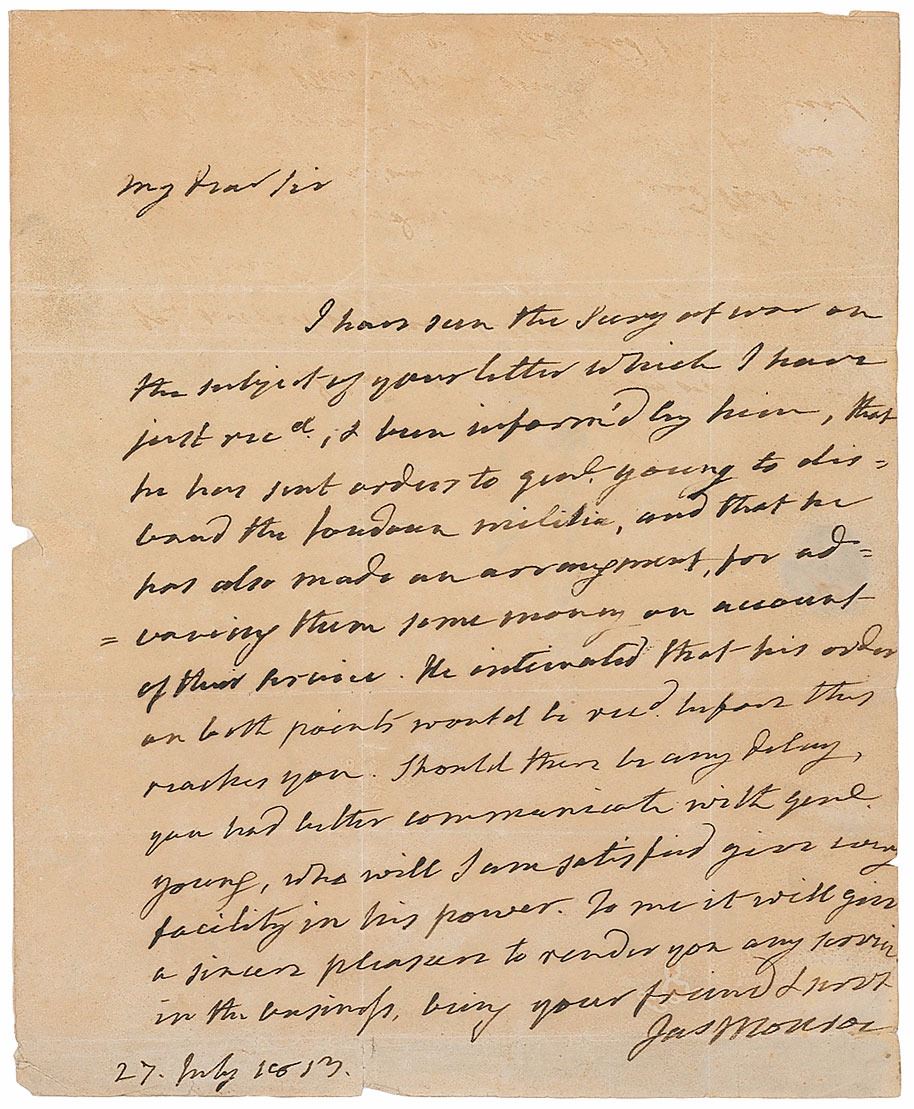 My Dear Sir
I have seen the Secry of war on
the subject of your letter which I have
just recd., & been inform'd by him, that
he has sent orders to genl. young to dis=
band the Loudoun militia, and that he
has also made an arrangement, for ad=
=vancing them some money on account
of their service. He intimated that his order
on both points would be recd. before this
reaches you. Should there be any delay,
you had better communicate with genl.
young, who will I am satisfied give every
facility in his power. To me it will give
a sincere pleasure to render you any service
in the business, being your friend & servt
Jas Monroe
27. July 1813.